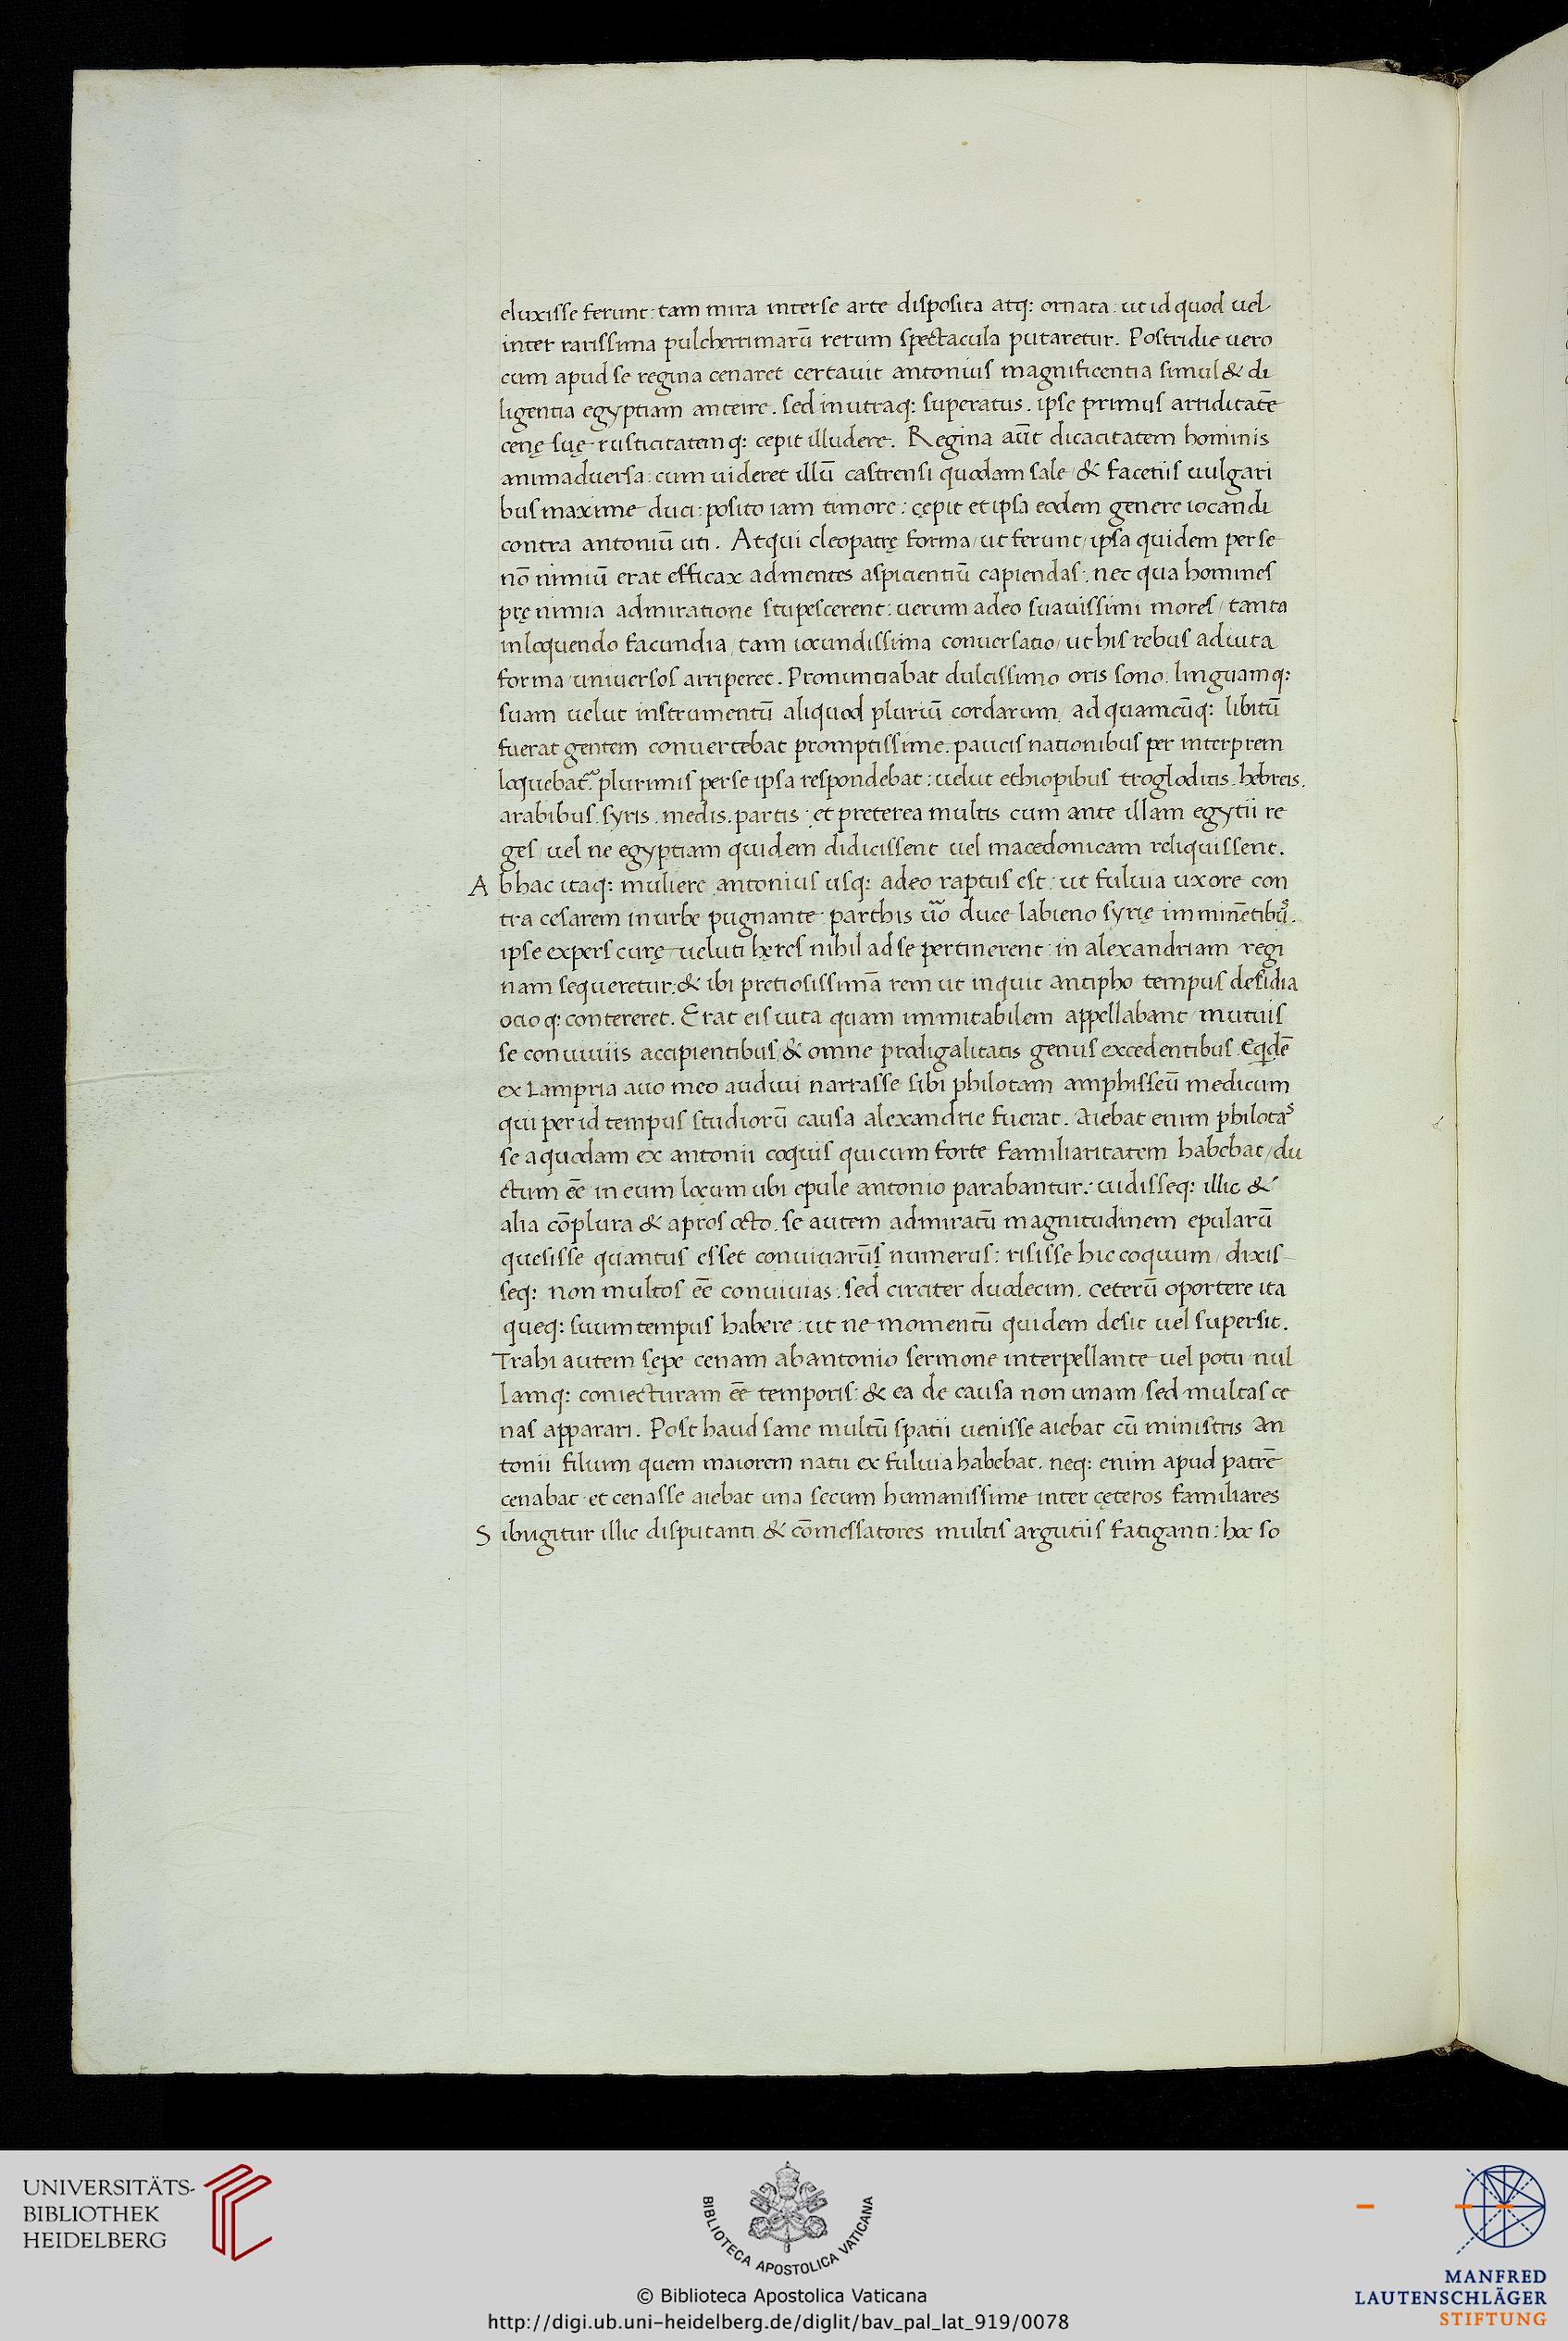 eluxisse ferunt: tam mira inter se arte disposita atq: ornata: ut id quod uel
inter rarissima pulcherrimarū rerum spectacula putaretur. Postridie uero
cum apud se regina cenaret certauit antonius magnificentia simul & di
ligentia egyptiam anteire. sed in utraq: superatus. ipse primus ariditatē
cenę suę rusticitatemq: cepit illudere. Regina aūt dicacitatem hominis
animaduersa: cum uideret illū castrensi quodam sale & facetiis uulgari
bus maxime duci: posito iam timore: cępit et ipsa eodem genere iocandi
contra antoniū uti. Atqui cleopatrę forma/ ut ferunt/ ipsa quidem per se
nō nimiū erat efficax ad mentes aspicientiū capiendas: nec qua homines
prę nimia admiratione stupescerent: uerum adeo suauissimi mores/ tanta
in loquendo facundia/ tam iocundissima conuersatio/ ut his rebus adiuta
forma uniuersos arriperet. Pronunciabat dulcissimo oris sono. linguamq:
suam uelut instrumentū aliquod pluriū cordarum/ ad quamcūq: libitū
fuerat gentem conuertebat promptissime. paucis nationibus per interprem
loquebat᷑ plurimis per se ipsa respondebat: uelut ethiopibus trogloditis. hebreis.
arabibus. syris. medis. partis: et preterea multis cum ante illam egytii re
ges/ uel ne egyptiam quidem didicissent uel macedonicam reliquissent.
A bhac itaq: muliere antonius usq: adeo raptus est: ut fuluia uxore con
tra cesarem in urbe pugnante parthis uo̅ duce labieno syrię imminētibus.
ipse expers curę ueluti hęres nihil ad se pertinerent: in alexandriam regi
nam sequeretur: & ibi pretiosissimā rem ut inquit antipho tempus desidia
ocioq: contereret. Erat eis uita quam immitabilem appellabant/ mutuis
se conuiuiis accipientibus & omne prodigalitatis genus excedentibus. Eqdē
ex Lampria auo meo audiui narrasse sibi philotam amphisseū medicum
qui per id tempus studiorū causa alexandrie fuerat. Aiebat enim philotas
se a quodam ex antonii coquis quicum forte familiaritatem habebat/ du
ctum eē in eum locum ubi epule antonio parabantur: uidisseq: illic &
alia cōplura & apros octo. se autem admiratū magnitudinem epularū
quesisse quantus esset conuiuiarūs numerus: risisse hic coquum/ dixis
seq: non multos eē conuiuias: sed circiter duodecim. ceterū oportere ita
queq: suum tempus habere: ut ne momentū quidem desit uel supersit.
Trahi autem sępe cenam ab antonio sermone interpellante uel potu nul
lamq: coniecturam eē temporis: & ea de causa non unam sed multas ce
nas apparari. Post haud sane multū spatii uenisse aiebat cū ministris An
tonii filium quem maiorem natu ex fuluia habebat. neq: enim apud patrē
cenabat et cenasse aiebat una secum humanissime inter cęteros familiares
S ibugitur illic disputanti & cōmessatores multis argutiis fatiganti: hoc so
UNIVERSITÄTS-
BIBLIOTHEK
HEIDELBERG
BIBLIOTECA APOSTOLICA VATICANA
© Biblioteca Apostolica Vaticana
http://digi.ub.uni-heidelberg.de/diglit/bav_pal_lat_919/0078
MANFRED
LAUTENSCHLÄGER
STIFTUNG